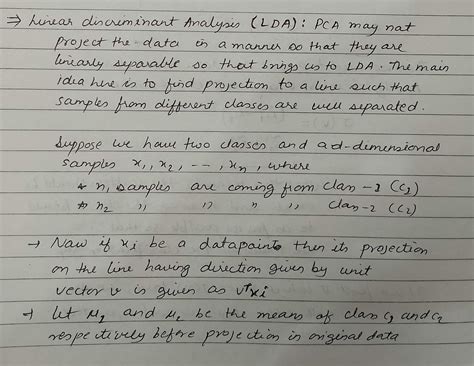 ⇒ Linear discriminant Analysis (LDA): PCA may not
project the data in a manner so that they are
linearly separable so that brings us to LDA. The main
idea here is to find projection to a line such that
samples from different classes are well separated.
Suppose we have two classes and a d-dimensional
samples x₁, x₂, ---, xₙ, where
* n₁ samples are coming from class-1 (C₁)
* n₂ ,, ,, ,, ,, class-2 (C₂)
→ Now if xi be a datapoint then its projection
on the line having direction given by unit
vector v is given as vᵀxi
→ let μ₁ and μ₂ be the means of class C₁ and C₂
respectively before projection in original data